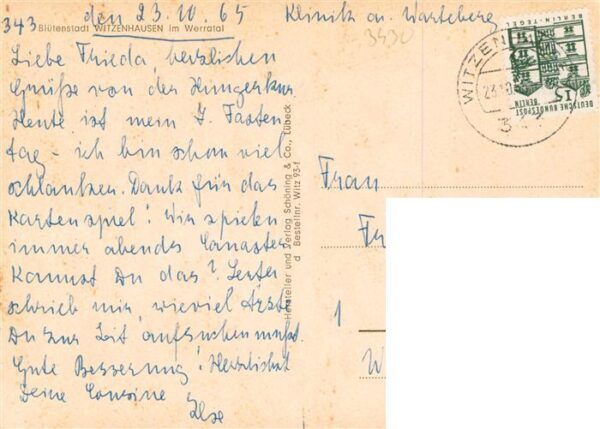 den 23.10.65 Klinik a. Warteberg
343 Blütenstadt WITZENHAUSEN im Werratal
3430
Liebe Frieda, herzlichen
Grüße von der Hungerkur
Heute ist mein 7. Fasten
tag - ich bin schon viel
schlanker. Dank für das
Kartenspiel! Wir spielen
immer abends Canaster
Kannst Du das?
schrieb mir, wieviel Ärzte
Du zur Zeit aufsuchen mußt.
Gute Besserung! Herzlichst
Deine Cousine
Ilse
Hersteller und Verlag Schöning & Co., Lübeck
d Bestellnr. Witz 93-f
WITZEN
23.10
DEUTSCHE BUNDESPOST
BERLIN
15
BERLIN-TEGEL
Frau
Fr
1
W